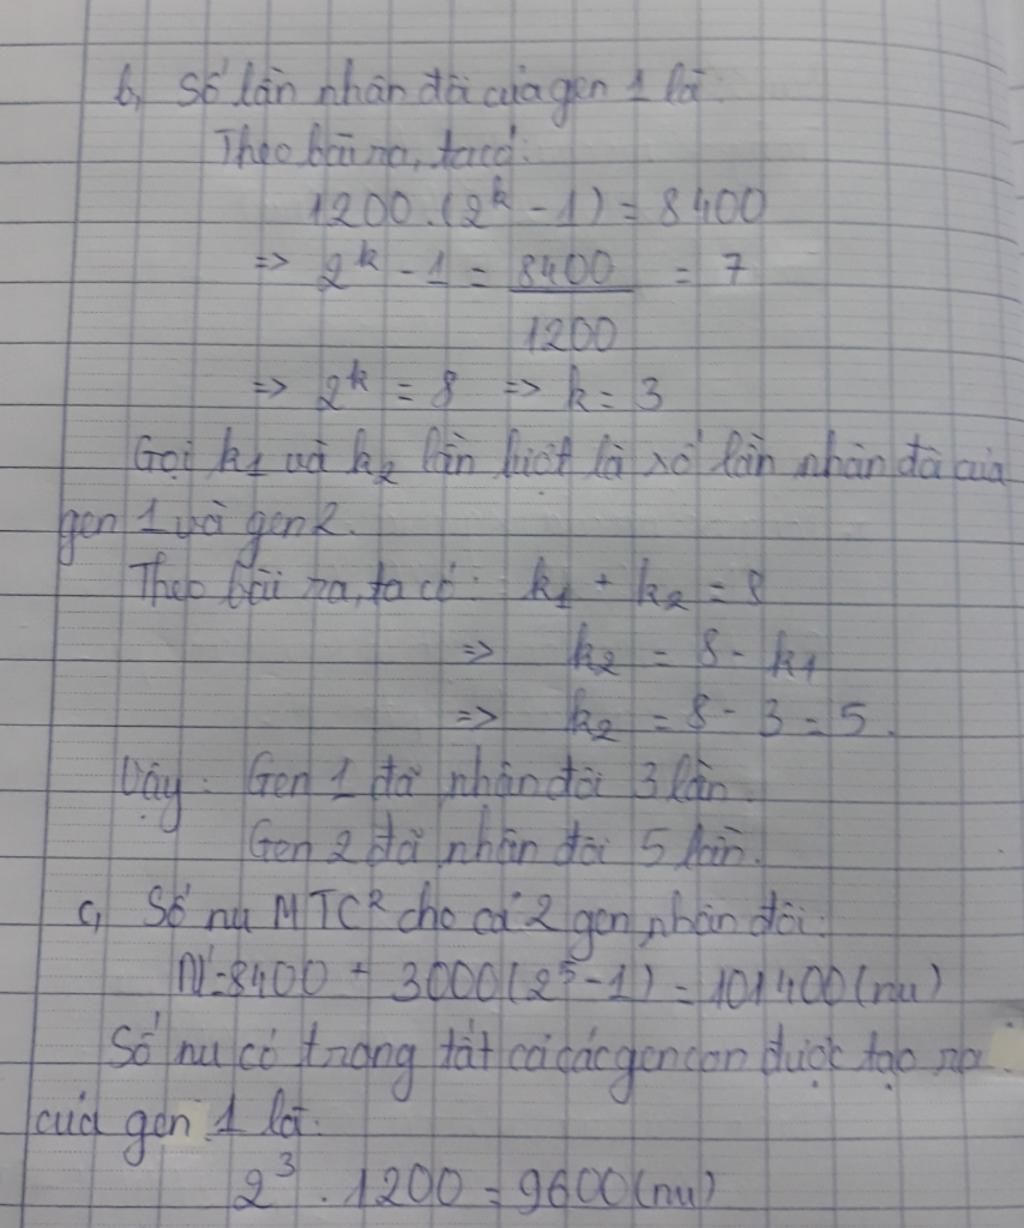 b, Số lần nhân đôi của gen 1 là
Theo bài ra, ta có:
1200.(2^k - 1) = 8400
=> 2^k - 1 = 8400 = 7
1200
=> 2^k = 8 => k = 3
Gọi k₁ và k₂ lần lượt là số lần nhân đôi của
gen 1 và gen 2.
Theo bài ra, ta có: k₁ + k₂ = 8
=> k₂ = 8 - k₁
=> k₂ = 8 - 3 = 5.
Vậy: Gen 1 đã nhân đôi 3 lần.
Gen 2 đã nhân đôi 5 lần.
c, Số nu MTC² cho cả 2 gen nhân đôi:
N' = 8400 + 3000(2⁵ - 1) = 101400 (nu)
Số nu có trong tất cả các gen con được tạo ra
của gen 1 là:
2³ . 1200 = 9600 (nu)